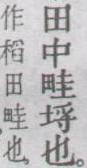 田中畦埒也。
作稻田畦也